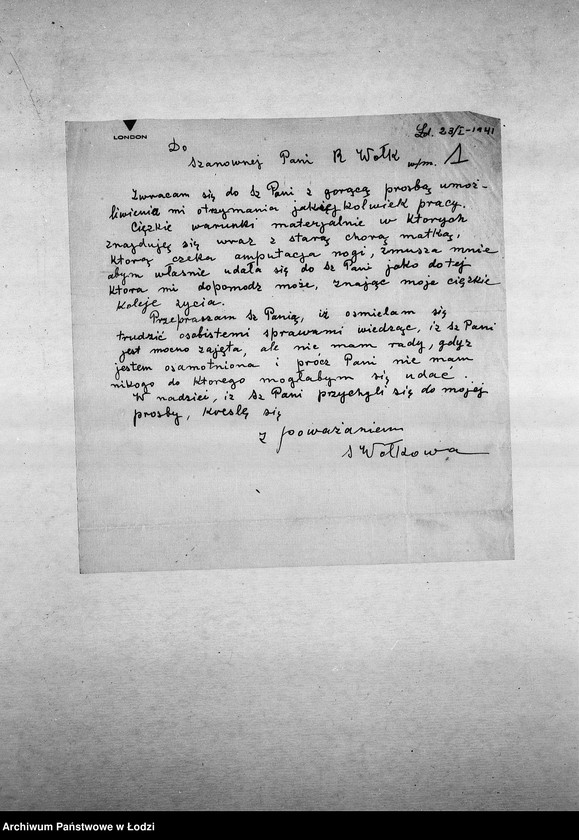 LONDON
Ld. 23/I-1941
Do
Szanownej Pani R Wołk w/m. 1
Zwracam się do Sz Pani z gorącą prosbą umoż-
liwienia mi otrzymania jakiejkolwiek pracy.
Ciężkie warunki materjalnie w których
znajduję się wraz z starą chorą matką,
którą czeka amputacja nogi, zmusza mnie
abym własnie udała się do Sz Pani jako do tej
która mi dopomodz może, znając moje ciężkie
koleje życia.
Przepraszam Sz Panią, iż osmielam się
trudzić osobistemi sprawami wiedząc, iż Sz Pani
jest mocno zajęta, ale nie mam rady, gdyż
jestem osamotniona i prócz Pani nie mam
nikogo do którego mogłabym się udać.
W nadziei, iż Sz Pani przychyli się do mojej
prosby, kreslę się
z poważaniem
S Wołkowa
Archiwum Państwowe w Łodzi